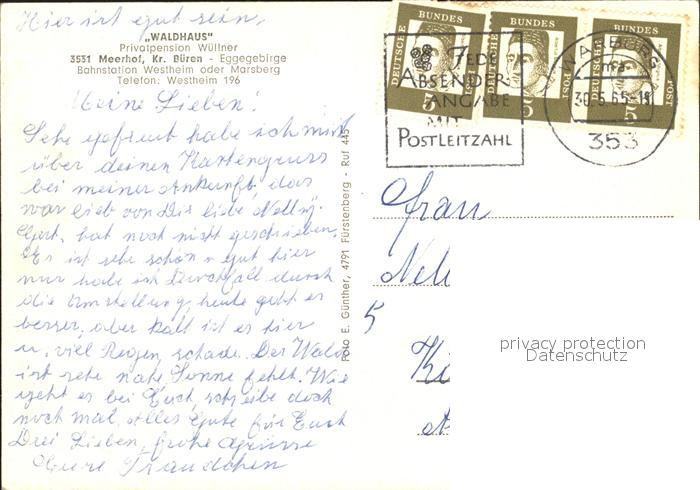 Hier ist gut sein,
„WALDHAUS"
Privatpension Wüllner
3531 Meerhof, Kr. Büren - Eggegebirge
Bahnstation Westheim oder Marsberg
Telefon: Westheim 196
Meine Lieben!
Sehr gefreut habe ich mich
über deinen Kartengruss
bei meiner Ankunft, das
war lieb von Dir liebe Nelly.
Gert, hat noch nicht geschrieben.
Es ist sehr schön u gut hier
nur habe ich Durchfall durch
die Umstellung, heute geht es
besser, aber kalt ist es hier
u, viel Regen, schade. Der Wald
ist sehr nahe, Sonne fehlt. Wie
geht es bei Euch, schreibe doch
noch mal, Alles Gute für Euch
Drei Lieben, frohe Grüsse
Eure Traudchen
Foto E. Günther, 4791 Fürstenberg - Ruf 445
DEUTSCHE BUNDESPOST
DEUTSCHE BUNDESPOST
DEUTSCHE BUNDESPOST
JEDE
ABSENDER-
ANGABE
MIT
POSTLEITZAHL
WARBURG
30.6.65-18
353
Frau
Nel
5
Ki
privacy protection
Datenschutz